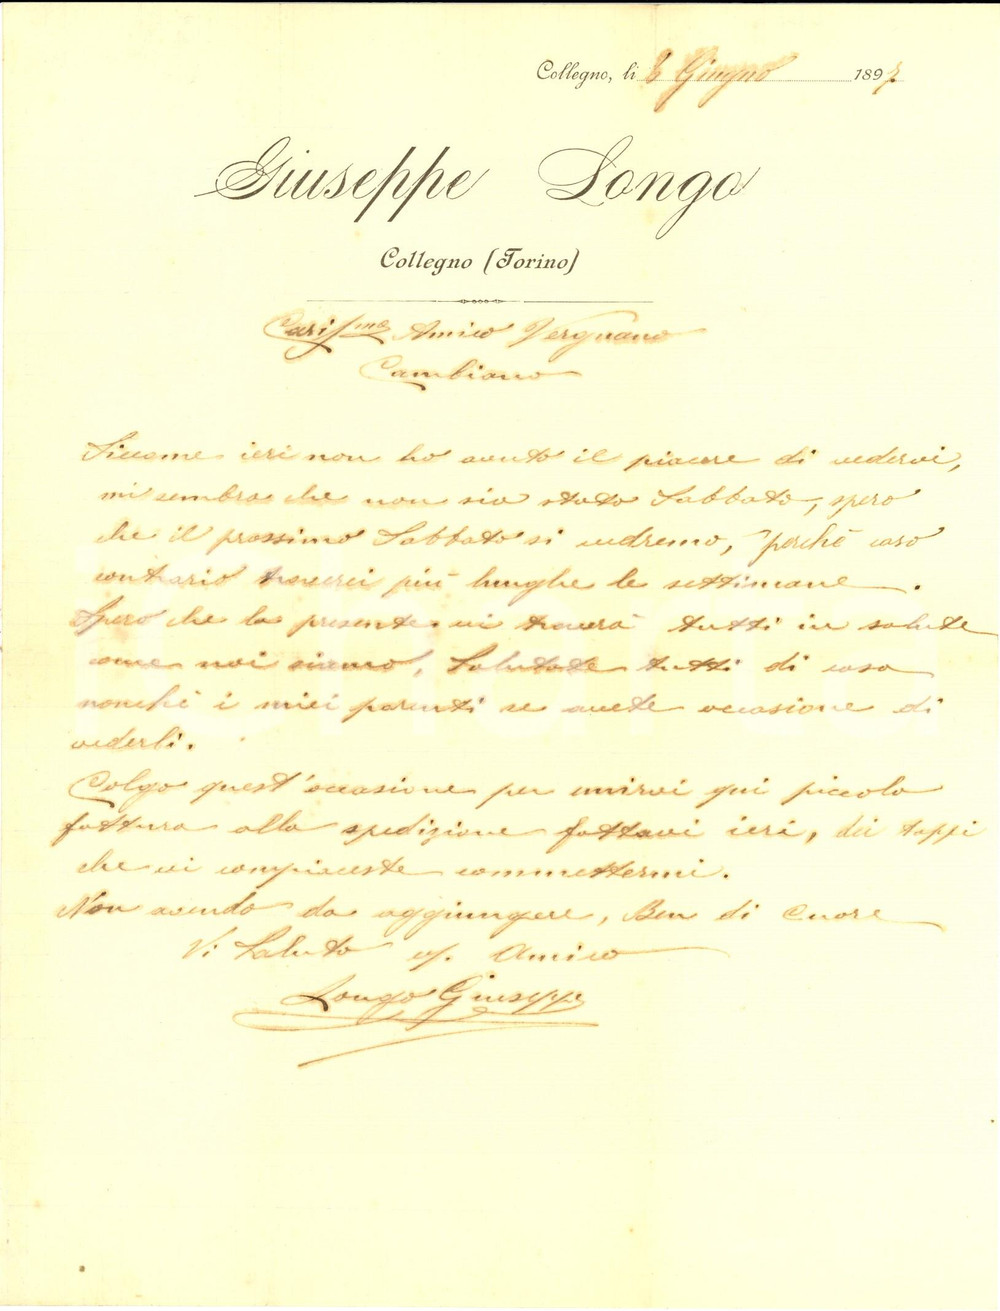 Collegno, li 6 Giugno 1897
Giuseppe Longo
Collegno (Torino)
Cariss.mo Amico Vergnano
Cambiano
Siccome ieri non ho avuto il piacere di vedervi,
mi sembra che non sia stato Sabbato, spero
che il prossimo Sabbato si vedremo, perchè caso
contrario troverei più lunghe le settimane.
Spero che la presente vi troverà tutti in salute
come noi siamo, Salutate tutti di casa
nonchè i miei parenti se avete occasione di
vederli.
Colgo quest'occasione per unirvi qui piccola
fattura alla spedizione fattavi ieri, dei tappi
che vi compiaceste commettermi.
Non avendo da aggiungere, Ben di Cuore
Vi Saluto Amico
Longo Giuseppe